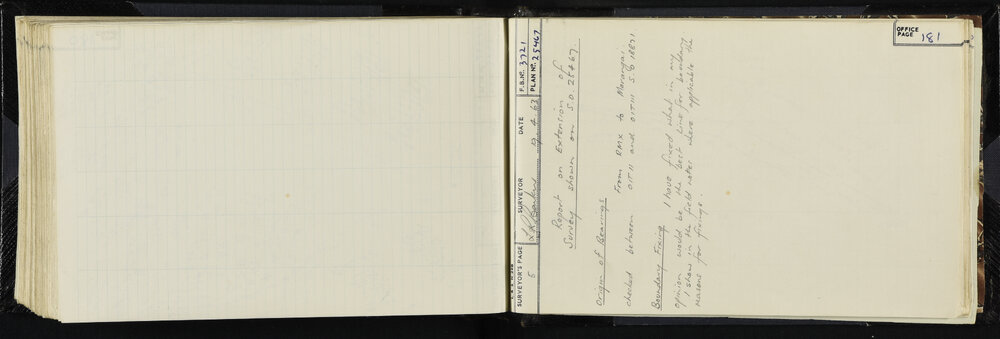 OFFICE
PAGE 181
F.B. Nº. 3721
PLAN Nº. 25467
DATE
19.4.63
SURVEYOR
SURVEYOR'S PAGE
5
Report on Extension of
Survey shown on S.O. 25467.
Origin of Bearings From DMX to Marangai
checked between OIT II and OIT III S.O 18871.
Boundary Fixing I have fixed what in my
opinion would be the best line for boundary
I show in the field notes where applicable the
reasons for fixings.